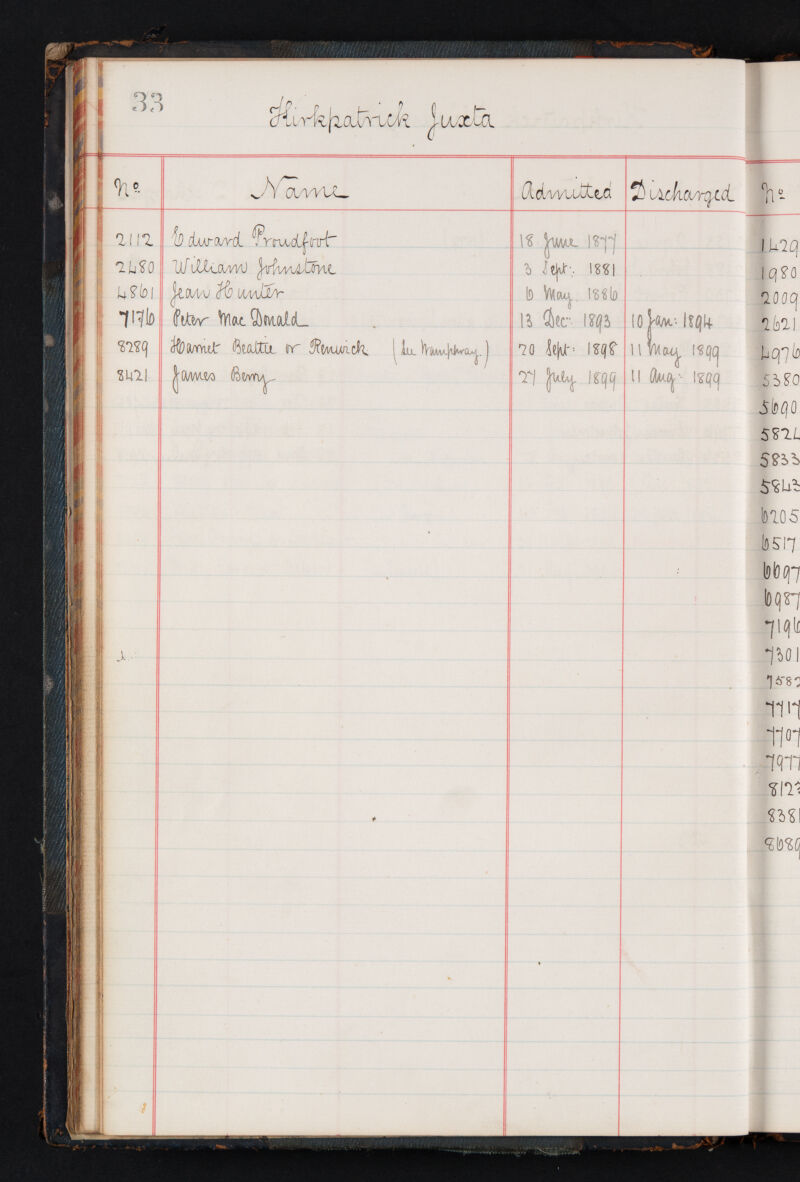 33
Kirkpatrick Juxta
No. Name Admitted Discharged
2112 Edward Proudfoot 18 June 1877
2480 William Johnstone 3 Sept: 1881
4861 Jean Hunter 6 May 1886
7176 Peter Mac Donald 13 Dec: 1893 10 Jan: 1894
8289 Harriet Beattie or Renwick (See Wamphray.) 20 Sept: 1898 11 May 1899
8421 James Berry 27 July 1899 11 Aug: 1899
No.
1429
1980
2009
2621
4976
5380
5690
5824
5833
5843
6205
6517
6697
6987
7196
7301
7717
7707
7977
8381
8689